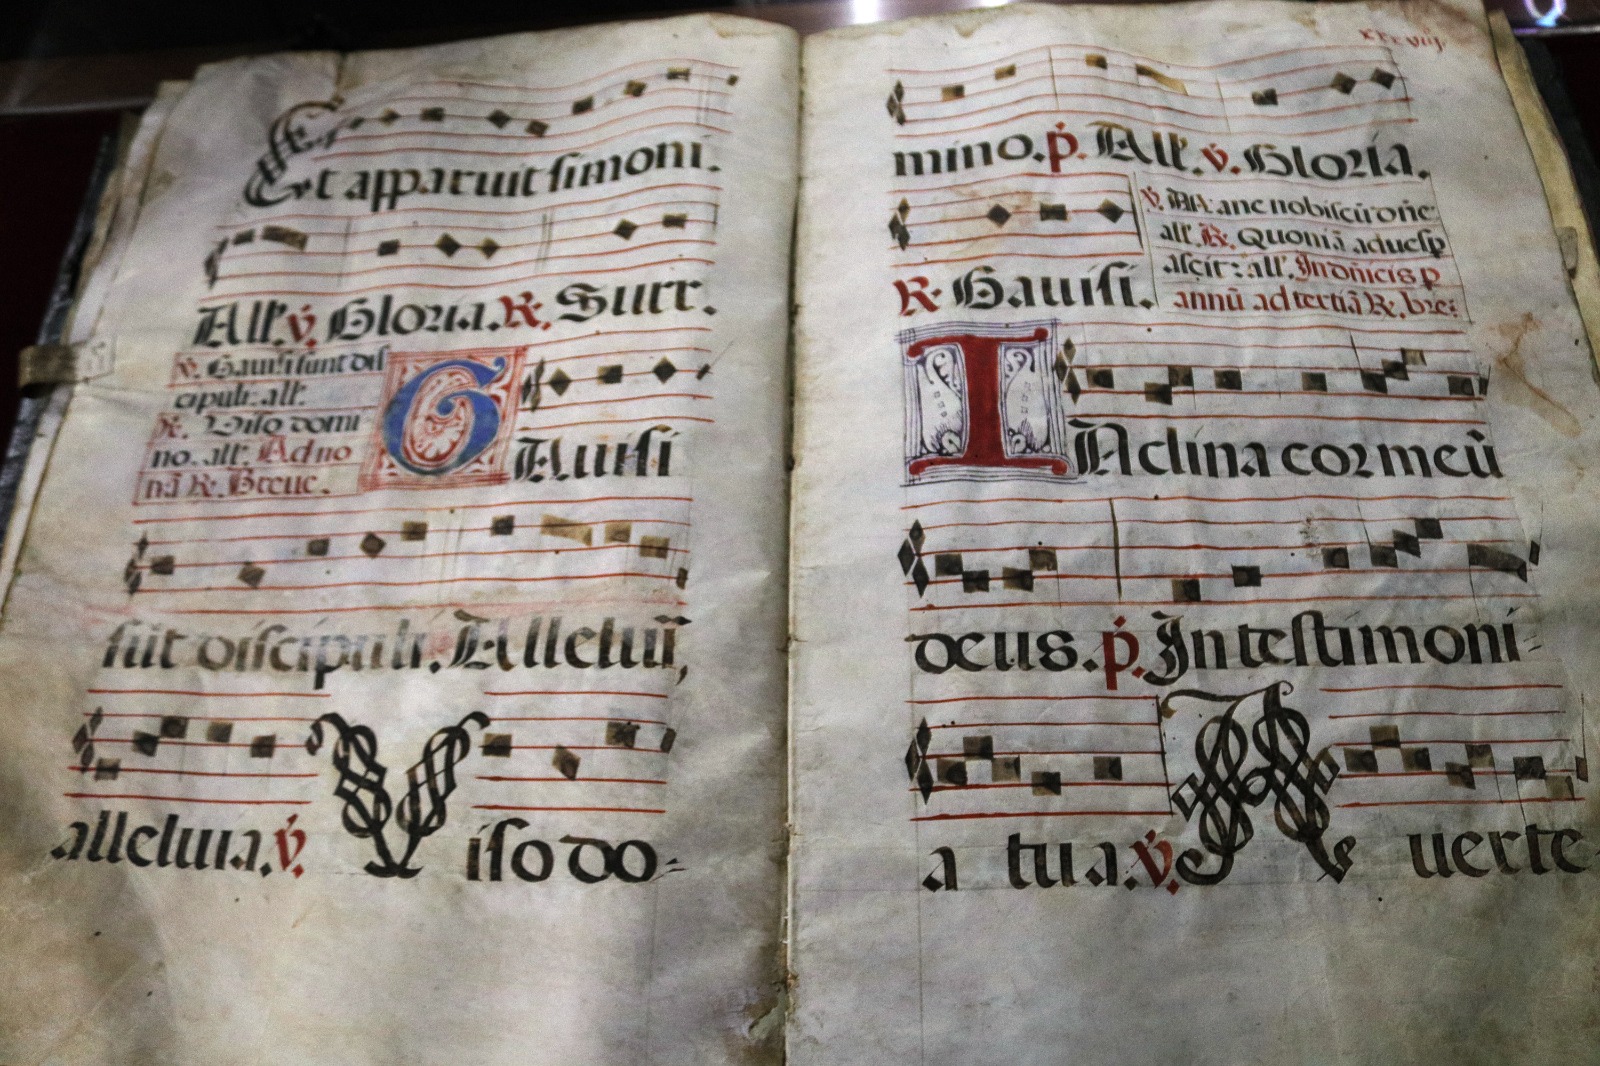 Et apparuit simoni.
All'. v. Gloria. R. Surr.
v. Gauisi sunt dis
cipuli: all'.
R. Viso domi
no. all'. Ad no
nā R. Breue.
GAuisi
sūt discipuli. Alleluīa,
alleluia. v. Viso do=
xxxviij
mino. p. All'. v. Gloria.
R. Gauisi.
v. Mane nobiscū: dn̄e
all'. R. Quoniā aduesp
ascit: all'. In dn̄icis p
annū ad tertiā R. bre:
INclina cor meū
deus. p. In testimoni=
a tua. v. Auerte